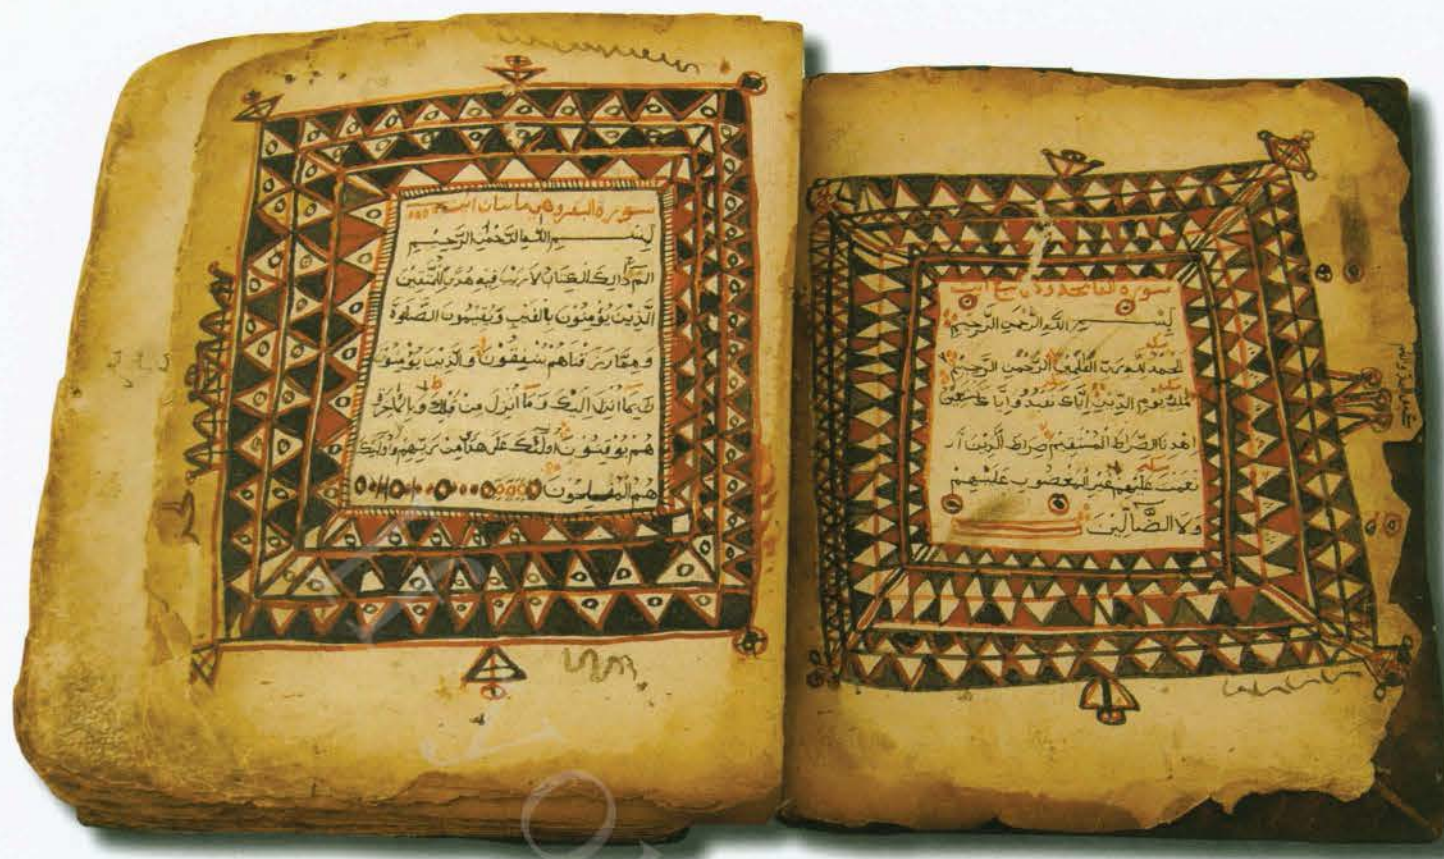 سورة الفاتحة وهي سبع آيت
بِسْــــمِ اللَّهِ الرَّحْمٰنِ الرَّحِيْمِ
الحمد للّه رَبِّ العٰلَمِيْنَ الرَّحْمٰنِ الرَّحِيْمِ
مٰلِكِ يَوْمِ الدِّيْنِ إِيَّاكَ نَعْبُدُ وَإِيَّاكَ نَسْتَعِيْنُ
اهْدِنَا الصِّرَاطَ الْمُسْتَقِيْمَ صِرَاطَ الَّذِيْنَ أَ
نْعَمْتَ عَلَيْهِمْ غَيْرِ الْمَغْضُوْبِ عَلَيْهِمْ
وَلَا الضَّالِّيْنَ
سورة البقرة وهي مأتان آيت
بِسْــــمِ اللَّهِ الرَّحْمٰنِ الرَّحِيْمِ
الم ذَالِكَ الْكِتَابُ لَا رَيْبَ فِيْهِ هُدًى لِلْمُتَّقِيْنَ
الَّذِيْنَ يُؤْمِنُوْنَ بِالْغَيْبِ وَيُقِيْمُوْنَ الصَّلٰوةَ
وَمِمَّا رَزَقْنَاهُمْ يُنْفِقُوْنَ وَالَّذِيْنَ يُؤْمِنُوْ
نَ بِمَا أُنْزِلَ إِلَيْكَ وَمَا أُنْزِلَ مِنْ قَبْلِكَ وَبِالْآخِرَةِ
هُمْ يُوْقِنُوْنَ أُولٰئِكَ عَلَى هُدًا مِنْ رَبِّهِمْ وَأُولٰئِكَ
هُمُ الْمُفْلِحُوْنَ